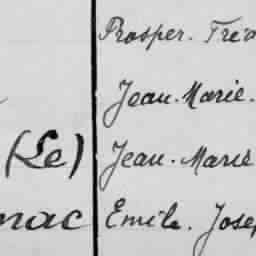 Prosper. Tréa
Jean. Marie.
(Le) Jean. Marie
nac Emile. Josep